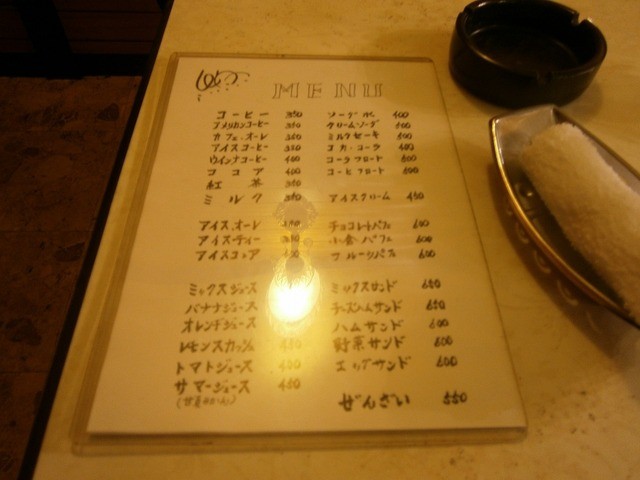 MENU
コーヒー 350
アメリカンコーヒー 350
カフェ・オーレ 350
アイスコーヒー 350
ウインナコーヒー 400
ココア 400
紅茶 350
ミルク 350
アイス・オーレ
アイスティー 350
アイスココア 400
ミックスジュース
バナナジュース
オレンヂジュース
レモンスカッシュ 450
トマトジュース 450
サマージュース 450
ソーダ水 400
クリームソーダ 500
ミルクセーキ 500
コカ・コーラ 400
コーラフロート 500
コーヒフロート 500
アイスクリーム 450
チョコレートパフェ 600
小倉パフェ 600
フルーツパフェ 600
ミックスサンド 650
チーズハムサンド 650
ハムサンド 600
野菜サンド 600
エッグサンド 600
ぜんざい 550